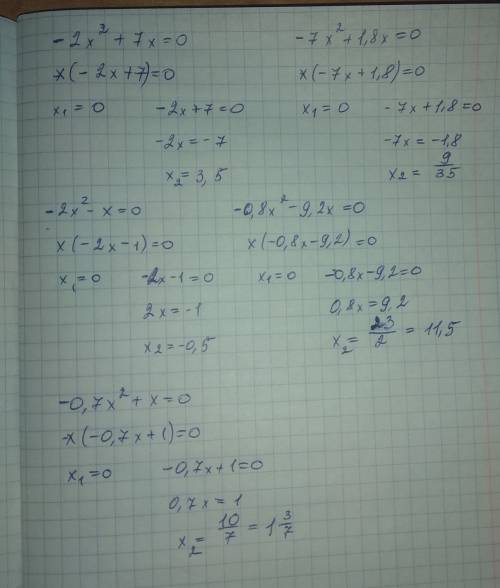 -2x² + 7x = 0
x(-2x+7)=0
x₁ = 0 -2x+7=0
-2x = -7
x₂ = 3,5
-7x² + 1,8x = 0
x(-7x+1,8)=0
x₁ = 0 -7x+1,8=0
-7x = -1,8
x₂ = 9/35
-2x² - x = 0
x(-2x-1)=0
x₁=0 -2x-1=0
2x = -1
x₂ = -0,5
-0,8x² - 9,2x = 0
x(-0,8x-9,2)=0
x₁=0 -0,8x-9,2=0
0,8x = 9,2
x₂ = 23/2 = 11,5
-0,7x² + x = 0
x(-0,7x+1)=0
x₁=0 -0,7x+1=0
0,7x = 1
x₂ = 10/7 = 1 3/7